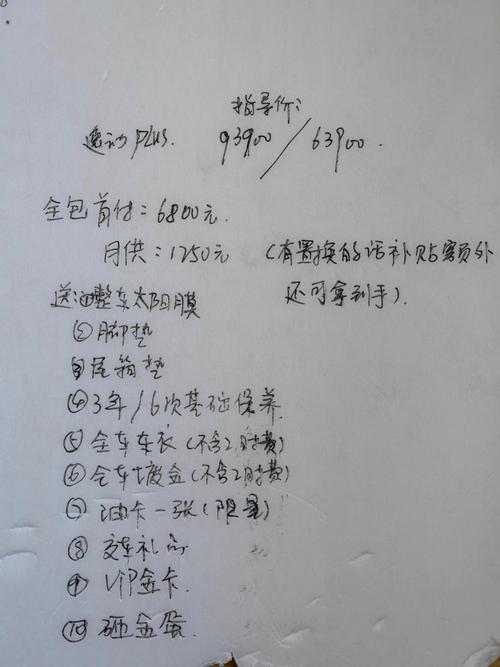 指导价:
逸动PLUS. 93900/63900.
全包首付:6800元.
月供:1250元 (有置换的话补贴客户另外
还可拿到手).
送:①整车太阳膜
②脚垫
③尾箱垫
④3年/6次基础保养
⑤全车车衣(不含工时费)
⑥全车镀金(不含工时费)
⑦油卡一张(限量)
⑧交车礼品
⑨VIP金卡.
⑩砸金蛋.